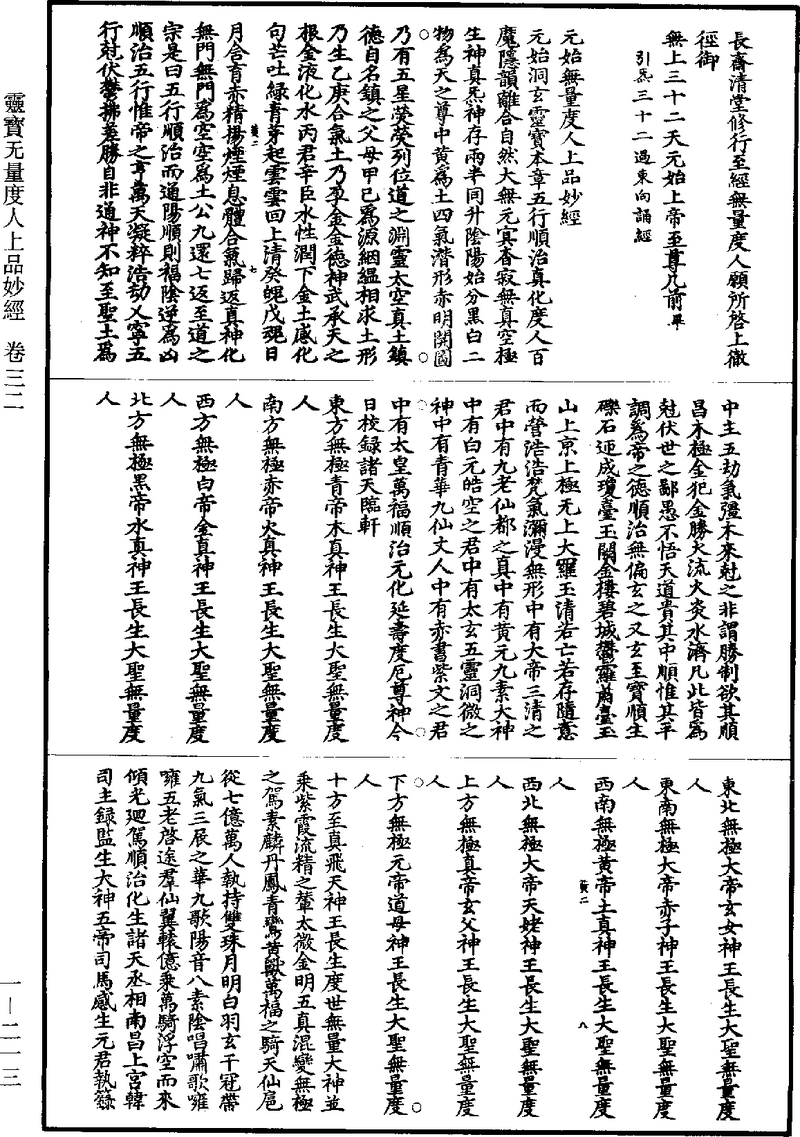 長齋清堂修行至經無量度人願所啓上徹
徑御
無上三十二天元始上帝至尊几前畢
引炁三十二過東向誦經
元始無量度人上品妙經
元始洞玄靈寶本章五行順治真化度人百
魔隱韻離合自然大無元㝠杳寂無真空極
生神真炁神存兩半同升陰陽始分黑白二
物爲天之尊中黃爲土四氣潛形赤明開圖
乃有五星熒熒列位道之淵靈太空真土鎮
德自名鎮之父母甲巳爲源絪緼相求土形
乃生乙庚合氣土乃孕金金德神武承天之
根金液化水丙君辛臣水性潤下金土感化
句芒吐綠青芽起雲雲回上清癸䰟戊䰟日
黃二
七
月含育赤精揚煙煙息體合氣歸返真神化
無門無門爲空空爲土公九還七返至道之
宗是曰五行順治而通陽順則福陰逆爲凶
順治五行惟帝之亨萬天凝粹浩劫乂寧五
行尅伏鬱拂差勝自非道神不知至聖土爲
中主五劫氣彊木來尅之非謂勝制欲其順
昌木極金犯金勝火流火炎水濟凡此皆爲
尅伏世之鄙愚不悟天道貴其中順惟其平
調爲帝之德順治無偏玄之又玄至寶順生
礫石迺成瓊臺玉闕金樓碧城鬱羅蕭臺玉
山上京上極无上大羅玉清若亡若存隨意
而營浩浩梵氣瀰漫無形中有大帝三清之
君中有九老仙都之真中有黃元九素大神
中有白元皓空之君中有太玄五靈洞微之
神中有青華九仙丈人中有赤書紫文之君
中有太皇萬福順治元化延壽度厄尊神今
日校錄諸天臨軒
東方無極青帝木真神王長生大聖無量度
人
南方無極赤帝火真神王長生大聖無量度
人
西方無極白帝金真神王長生大聖無量度
人
北方無極黑帝水真神王長生大聖無量度
人
東北無極大帝玄女神王長生大聖無量度
人
東南無極大帝赤子神王長生大聖無量度
人
黃二
八
西南無極黃帝土真神王長生大聖無量度
人
西北無極大帝天姥神王長生大聖無量度
人
上方無極真帝玄父神王長生大聖無量度
人
下方無極元帝道母神王長生大聖無量度
人
十方至真飛天神王長生度世無量大神並
乘紫霞流精之輦太微金明五真混變無極
之駕素麟丹鳳青鸞黃獸萬福之騎天仙扈
從七億萬人執持雙珠月明白羽玄干冠帶
九氣三辰之華九歌陽音八素陰唱嘯歌嗈
嗈五老啓途羣仙翼轅億乘萬騎浮空而來
傾光廻駕順治化生諸天丞相南昌上宮韓
司主錄監生大神五帝司馬感生元君執籙
靈寶无量度人上品妙經　卷三二
一—二一三